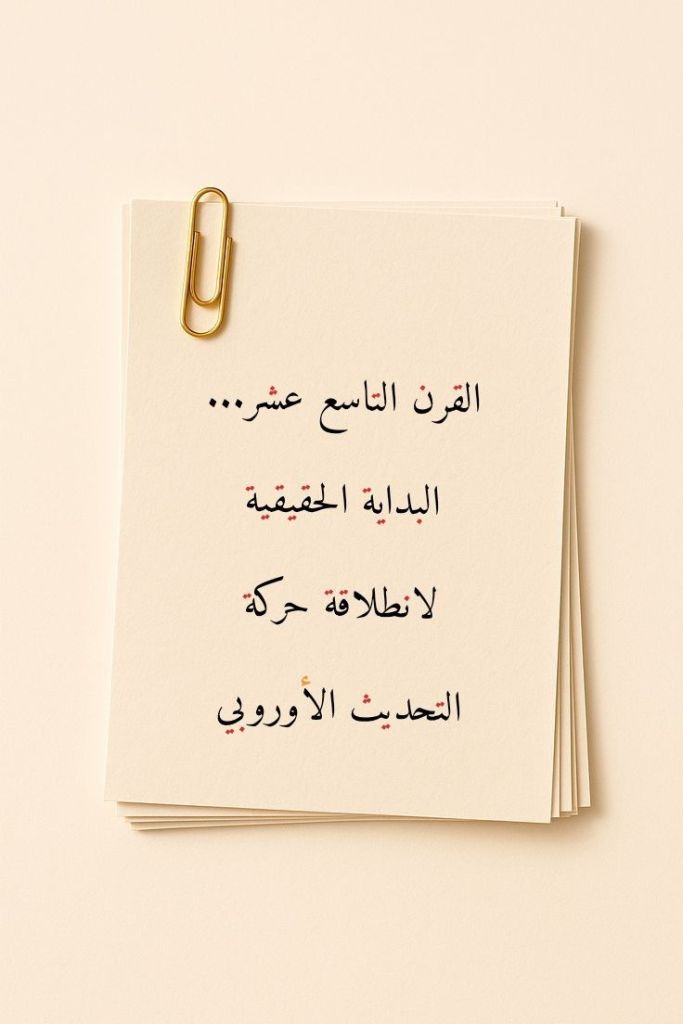 القرن التاسع عشر...
البداية الحقيقية
لانطلاقة حركة
التحديث الأوروبي